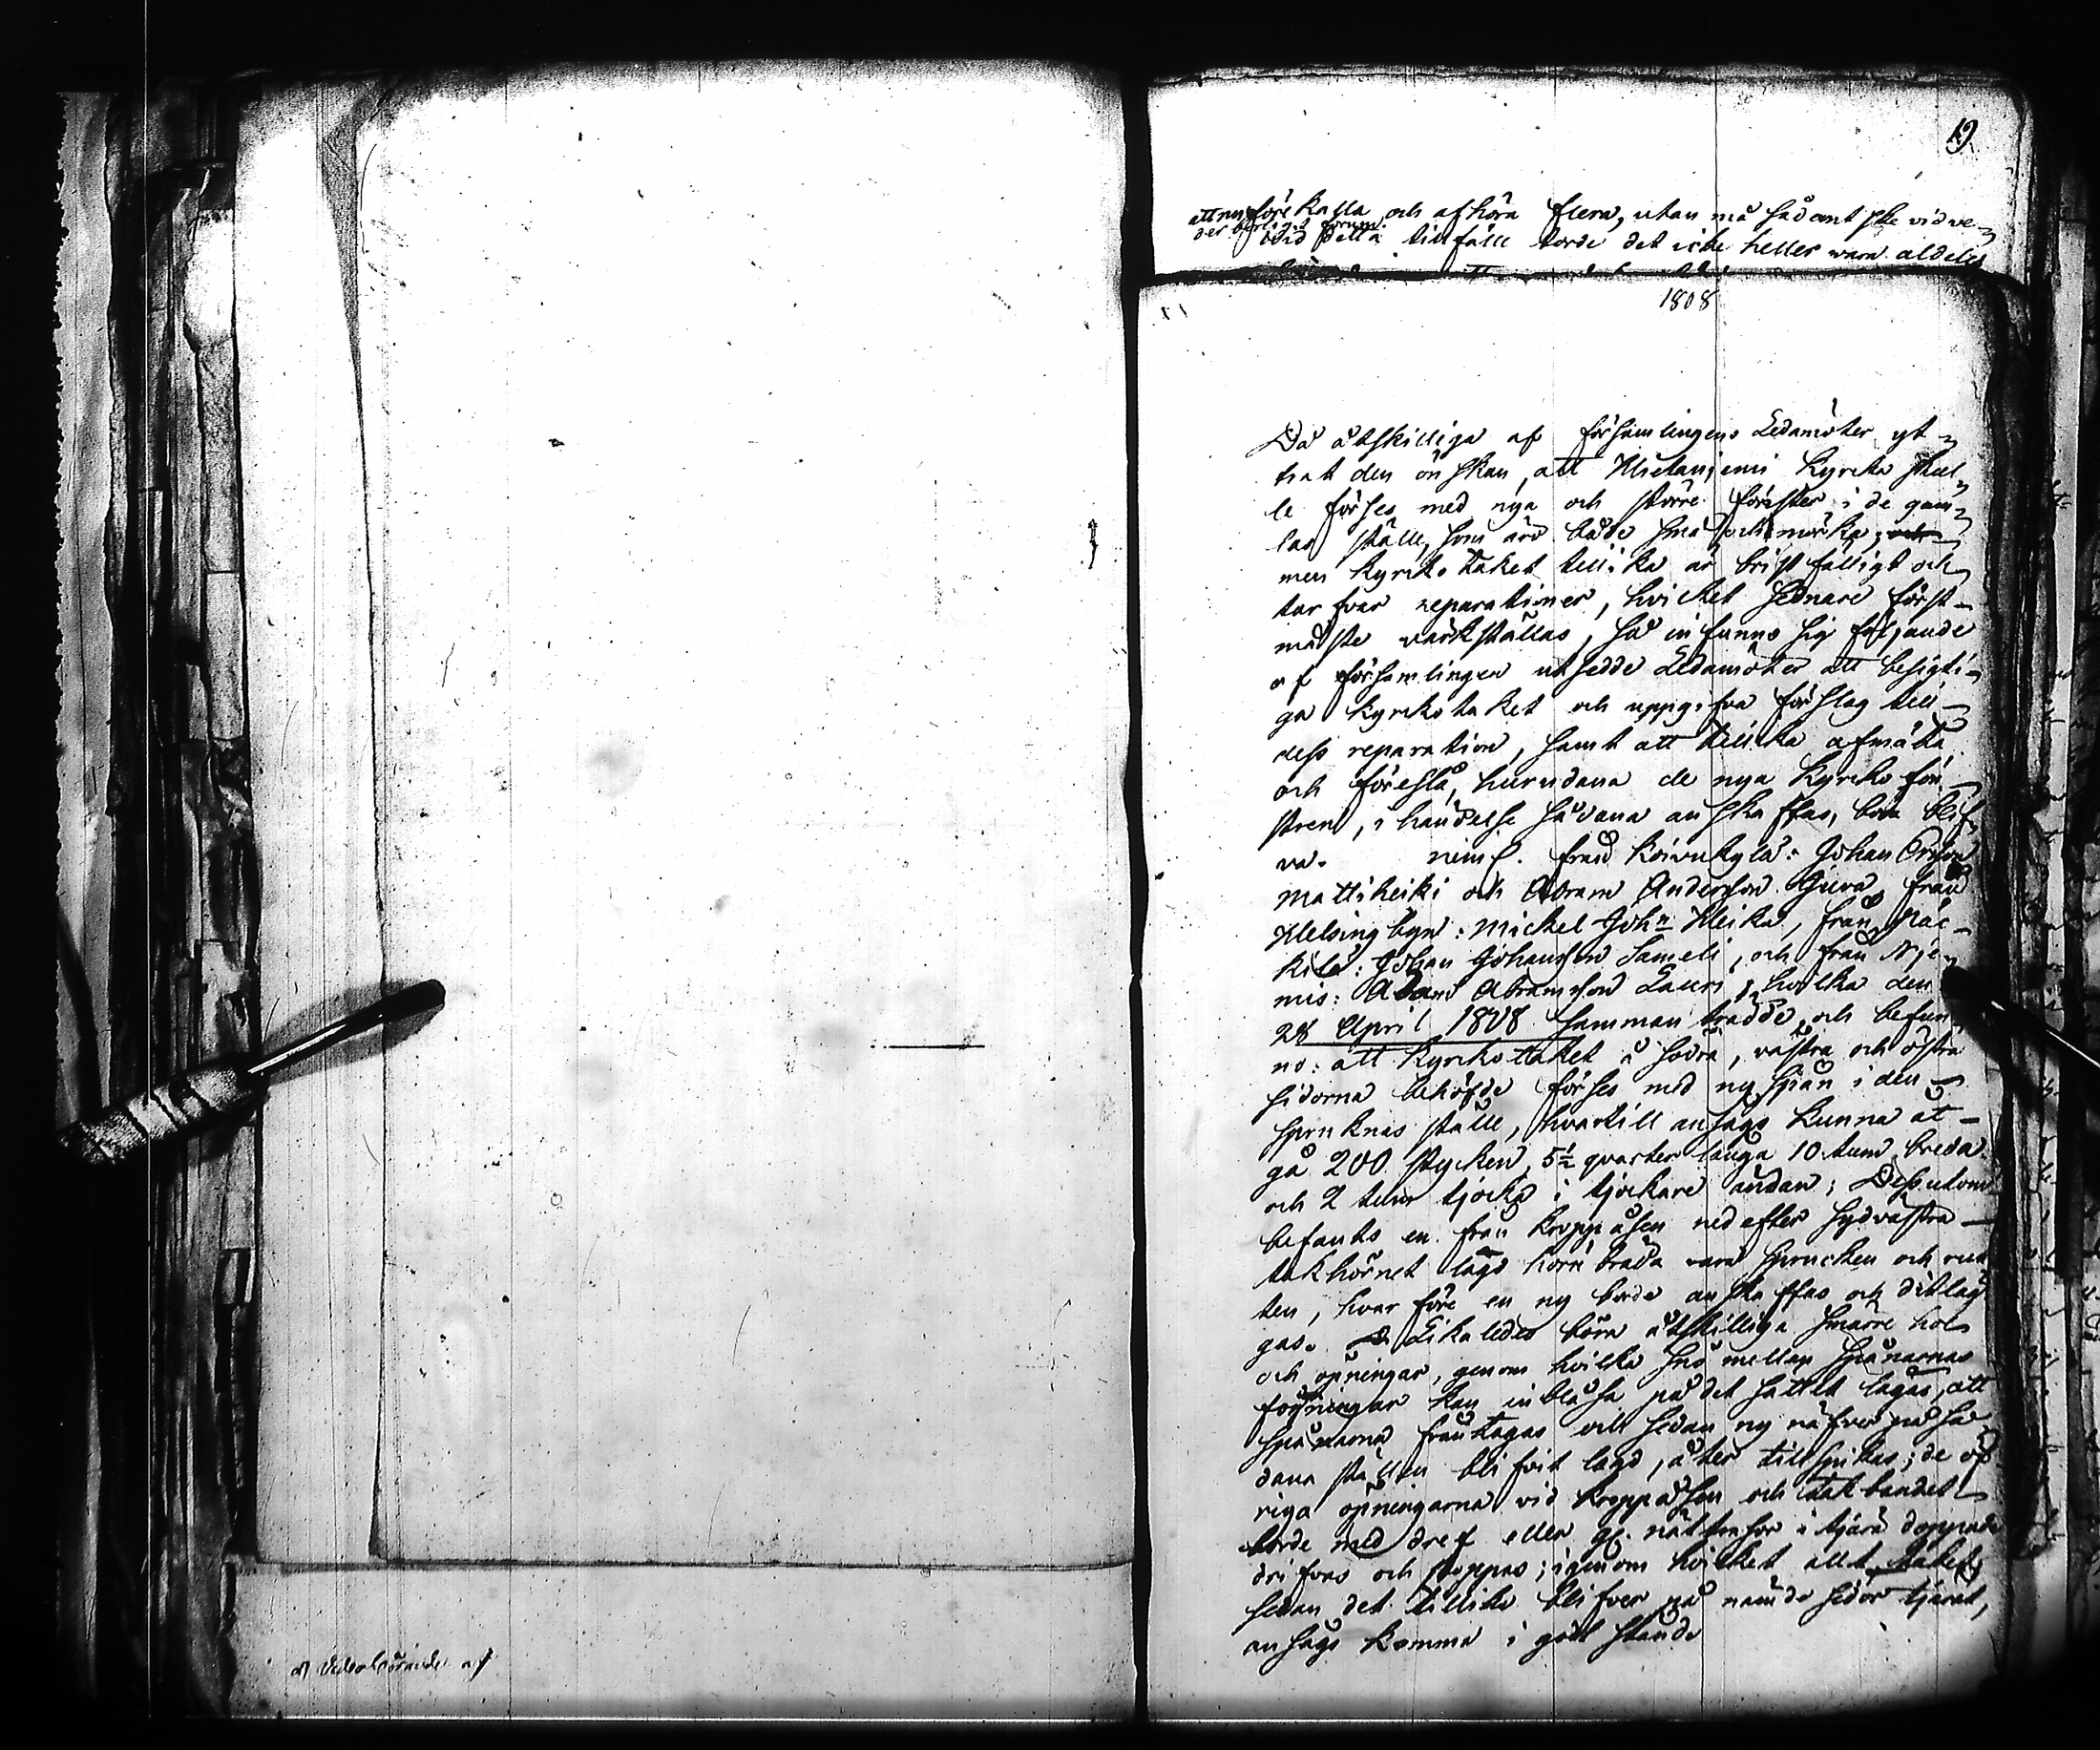 19
att nu förekalla och afhöra flera, utan må sådant ske vid ve-
derbörligt forum.
vid detta tillfälle torde det icke heller vara aldeles
1808
Då åtskilliga af församlingens Ledamöter yt-
trat den önskan, att kyrcka skul-
le förses med nya och större fönster i de gam-
las ställe, som äro både små och mörka,
men kyrkotaket tillika är bristfälligt och
tarfvar reparationer, hvilket sednare först
måste värkställas, så infunno sig följande
af församlingen utsedde Ledamöter att besigti-
ga kyrkotaket och uppgifva förslag till
dess reparation, samt att tillika afmäta
och föreslå, hurudana de nya kyrko fön-
stren, i händelse sådana anskaffas, böra blif-
va. neml. från Koivukylä: Johan Ersson
Mattiheiki och Abram Andersson Juva, från
Helsingbyn: Mickel John Heika, från Räc-
kilä: Johan Johansson Sameli, och från Nje-
mis: Adam Abramsson Lauri, hvilka den
28 April 1808 sammanträdde och befun-
no: att kyrkotaket å södra, västra och östra
sidorna behöfde förses med ny spån i den
spruknas ställe, hvartill ansågs kunna åt-
gå 200 stycken, 5½ qvarter långa 10 tum breda
och 2 tum tjocka i tjockare ändan; Dessutom
befants en från kroppåsen nedefter sydvästra
takhörnet lagd hörnbräda vara sprucken och rut-
ten, hvarföre en ny borde anskaffas och ditläg-
gas. Likaledes böra åtskilliga smärre hol
och öpningar, genom hvilka snö mellan spånarnas
fogningar kan inblåsa på det sättet lagas, att
spånarna fråntagas och sedan ny näfver på så-
dana ställen blifvit lagd, åter tillspikas; de öf-
riga öpningarna vid kroppåsen och takbandet
borde med dref eller gl. nättrasor i tjära doppade
drifvas och stoppas; igenom hvilket allt taket,
sedan det tillika blifver på nämde sidor tjärat,
ansågs komma i godt stånd
af Vederbörande af